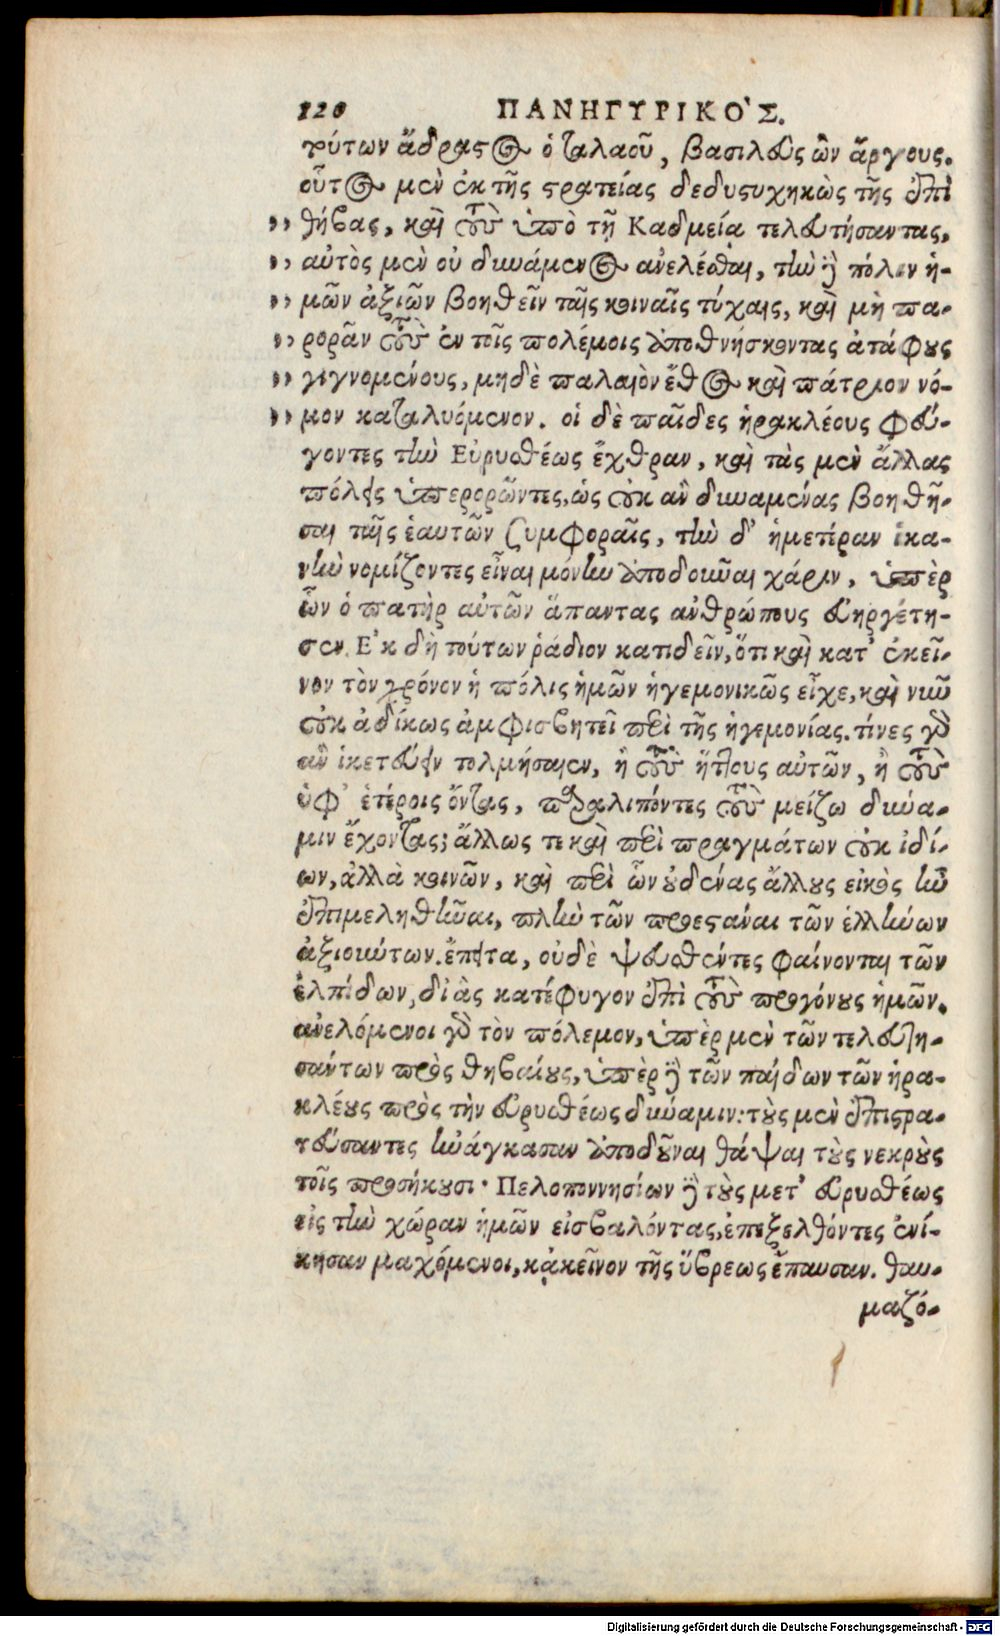 120 ΠΑΝΗΓΥΡΙΚΟ΄Σ.
τύτων ἄδραστος ὁ ταλαοῦ, βασιλεὺς ὢν ἄργους.
οὗτος μὲν ἐκ τῆς στρατείας δεδυστυχηκὼς τῆς ἐπὶ
,, θήβας, καὶ τοὺς ὑπὸ τῇ Καδμείᾳ τελευτήσαντας,
,, αὐτὸς μὲν οὐ δυνάμενος ἀνελέσθαι, τὴν δὲ πόλιν ἡ-
,, μῶν ἀξιῶν βοηθεῖν ταῖς κοιναῖς τύχαις, καὶ μὴ πα-
,, ρορᾶν τοὺς ἐν τοῖς πολέμοις ἀποθνήσκοντας ἀτάφους
,, γιγνομένους, μηδὲ παλαιὸν ἔθος καὶ πάτριον νό-
,, μον καταλυόμενον. οἱ δὲ παῖδες ἡρακλέους φεύ-
γοντες τὴν Εὐρυσθέως ἔχθραν, καὶ τὰς μὲν ἄλλας
πόλεις ὑπερορῶντες, ὡς οὐκ ἂν δυναμένας βοηθῆ-
σαι ταῖς ἑαυτῶν συμφοραῖς, τὴν δ' ἡμετέραν ἱκα-
νὴν νομίζοντες εἶναι μόνην ἀποδοῦναι χάριν, ὑπὲρ
ὧν ὁ πατὴρ αὐτῶν ἅπαντας ἀνθρώπους εὐηργέτη-
σεν. Ἐκ δὴ τούτων ῥάδιον κατιδεῖν, ὅτι καὶ κατ' ἐκεῖ-
νον τὸν χρόνον ἡ πόλις ἡμῶν ἡγεμονικῶς εἶχε, καὶ νῦν
οὐκ ἀδίκως ἀμφισβητεῖ περὶ τῆς ἡγεμονίας. τίνες γὰρ
ἂν ἱκετεύειν τολμήσαιεν, ἢ τοὺς ἥττους αὐτῶν, ἢ τοὺς
ὑφ' ἑτέροις ὄντας, παραλιπόντες τοὺς μείζω δύνα-
μιν ἔχοντας; ἄλλως τε καὶ περὶ πραγμάτων οὐκ ἰδί-
ων, ἀλλὰ κοινῶν, καὶ περὶ ὧν οὐδένας ἄλλους εἰκὸς ἦν
ἐπιμεληθῆναι, πλὴν τῶν προεστάναι τῶν ἑλλήνων
ἀξιούντων. ἔπειτα, οὐδὲ ψευσθέντες φαίνονται τῶν
ἐλπίδων, δι ἃς κατέφυγον ἐπὶ τοὺς προγόνους ἡμῶν.
ἀνελόμενοι γὰρ τὸν πόλεμον, ὑπὲρ μὲν τῶν τελευτη-
σάντων πρὸς θηβαίους, ὑπὲρ δὲ τῶν παίδων τῶν ἡρα-
κλέους πρὸς τὴν εὐρυσθέως δύναμιν: τοὺς μὲν ἐπιστρα-
τεύσαντες ἠνάγκασαν ἀποδοῦναι θάψαι τοὺς νεκροὺς
τοῖς προσήκουσι· Πελοποννησίων δὲ τοὺς μετ' εὐρυσθέως
εἰς τὴν χώραν ἡμῶν εἰσβαλόντας, ἐπεξελθόντες ἐνί-
κησαν μαχόμενοι, κἀκεῖνον τῆς ὕβρεως ἔπαυσαν. θαυ-
μαζό-
Digitalisierung gefördert durch die Deutsche Forschungsgemeinschaft - DFG